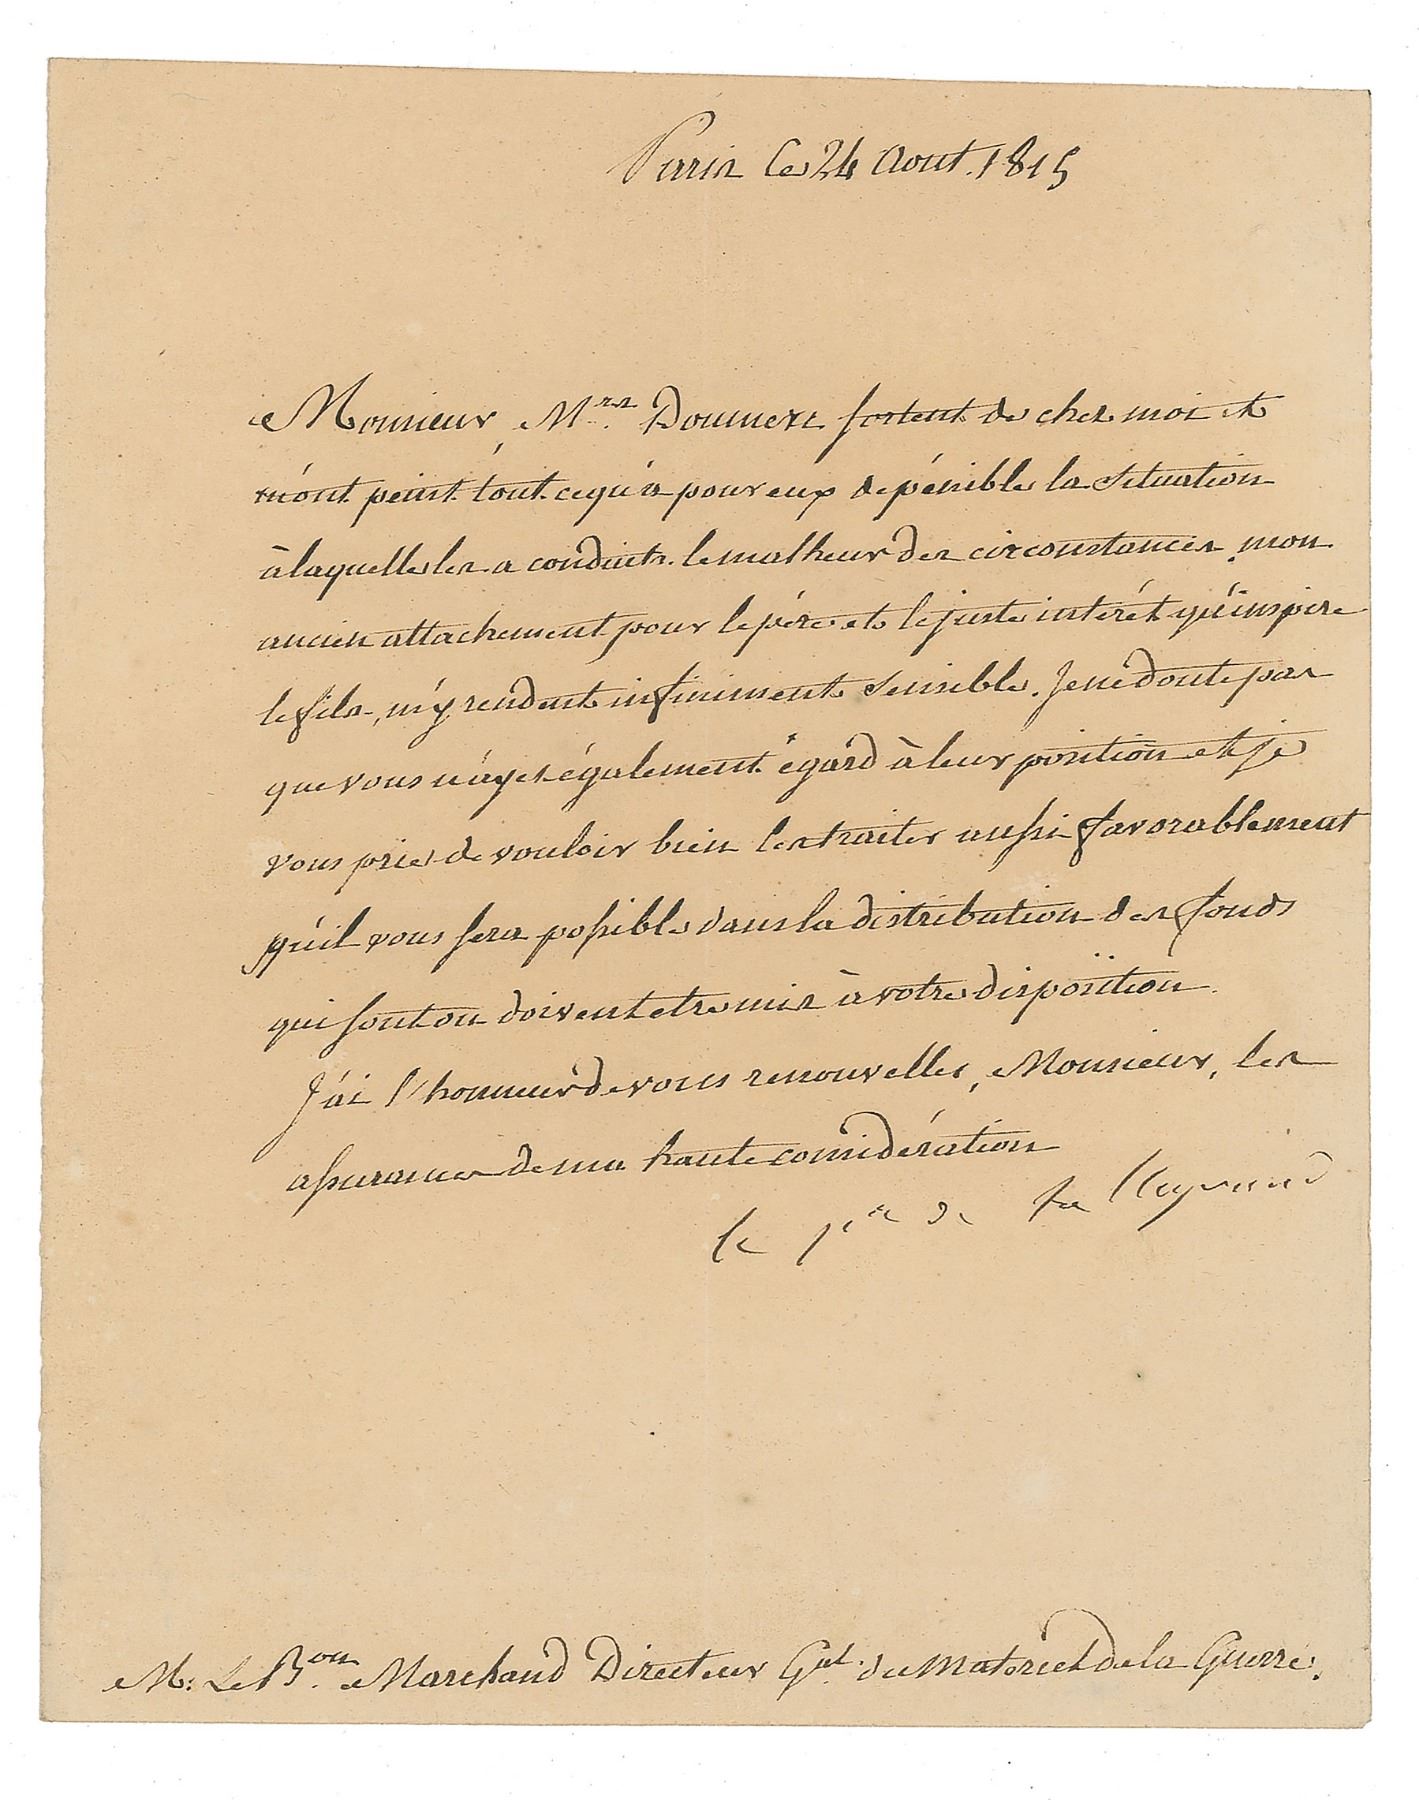 Paris le 24 Aout. 1815
Monsieur, M.rs Doumerc sortent de chez moi et
m'ont peint tout ce qu'a pour eux de pénible la situation
à laquelle les a conduits le malheur des circonstances. mon
ancien attachement pour le père et le juste intérêt qu'inspire
le fils, m'y rendent infiniment sensible. Je ne doute pas
que vous n'ayez également égard à leur position et je
vous prie de vouloir bien les traiter aussi favorablement
qu'il vous sera possible dans la distribution des fonds
qui sont ou doivent etre mis à votre disposition.
J'ai l'honneur de vous renouveller, Monsieur, les
assurances de ma haute considération
le p.ce de Talleyrand
M. Le B.on Marchand Directeur G.al du Matériel de la Guerre.